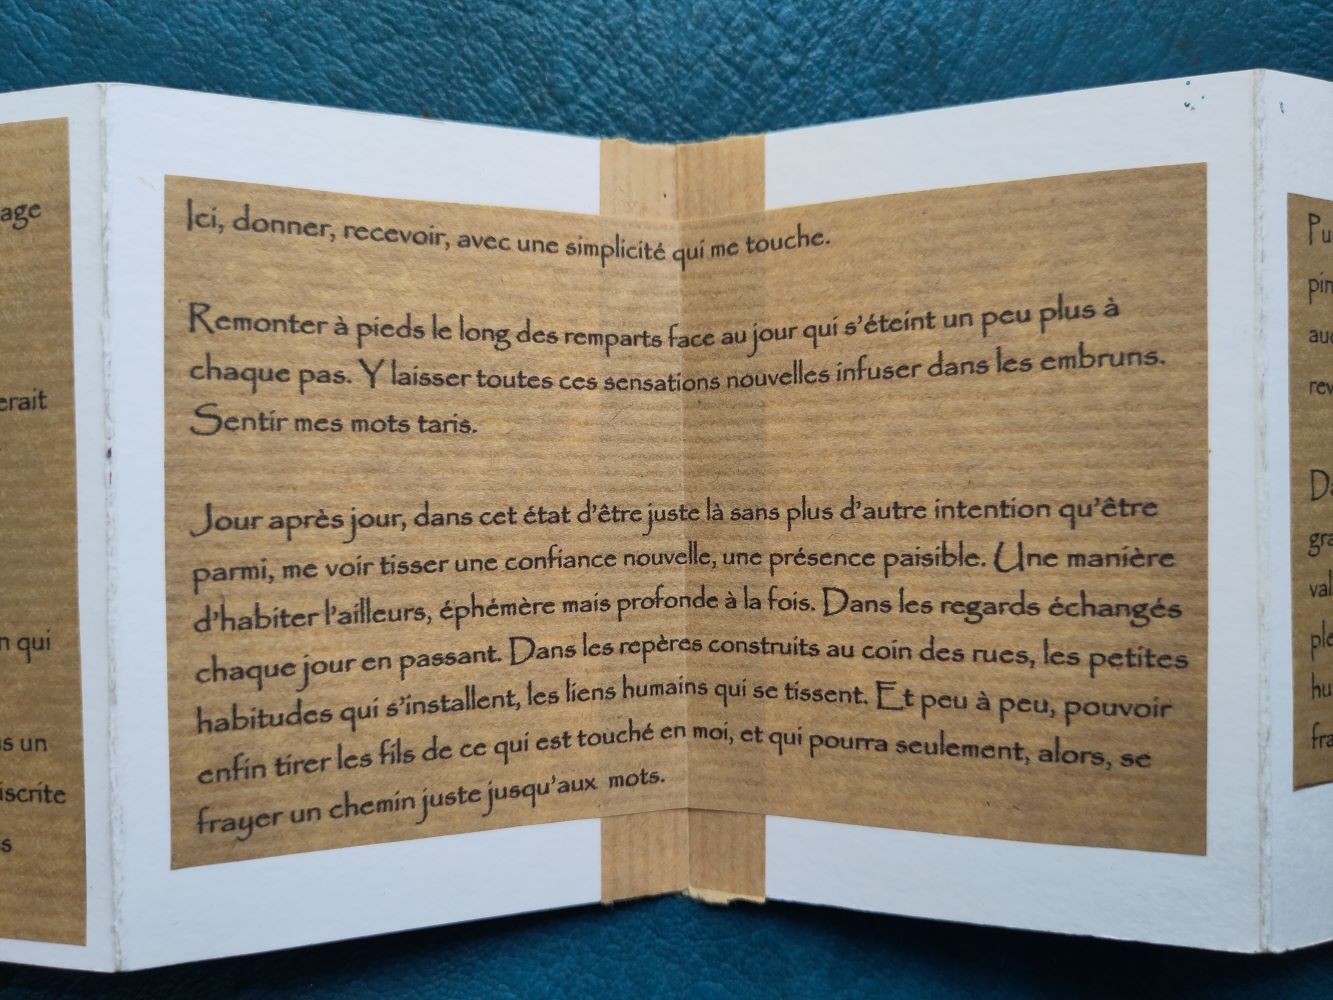 age
erait
n qui
s un
iscrite
s
Ici, donner, recevoir, avec une simplicité qui me touche.
Remonter à pieds le long des remparts face au jour qui s'éteint un peu plus à
chaque pas. Y laisser toutes ces sensations nouvelles infuser dans les embruns.
Sentir mes mots taris.
Jour après jour, dans cet état d'être juste là sans plus d'autre intention qu'être
parmi, me voir tisser une confiance nouvelle, une présence paisible. Une manière
d'habiter l'ailleurs, éphémère mais profonde à la fois. Dans les regards échangés
chaque jour en passant. Dans les repères construits au coin des rues, les petites
habitudes qui s'installent, les liens humains qui se tissent. Et peu à peu, pouvoir
enfin tirer les fils de ce qui est touché en moi, et qui pourra seulement, alors, se
frayer un chemin juste jusqu'aux mots.
Pu
pin
rev
gra
val
hu
fra